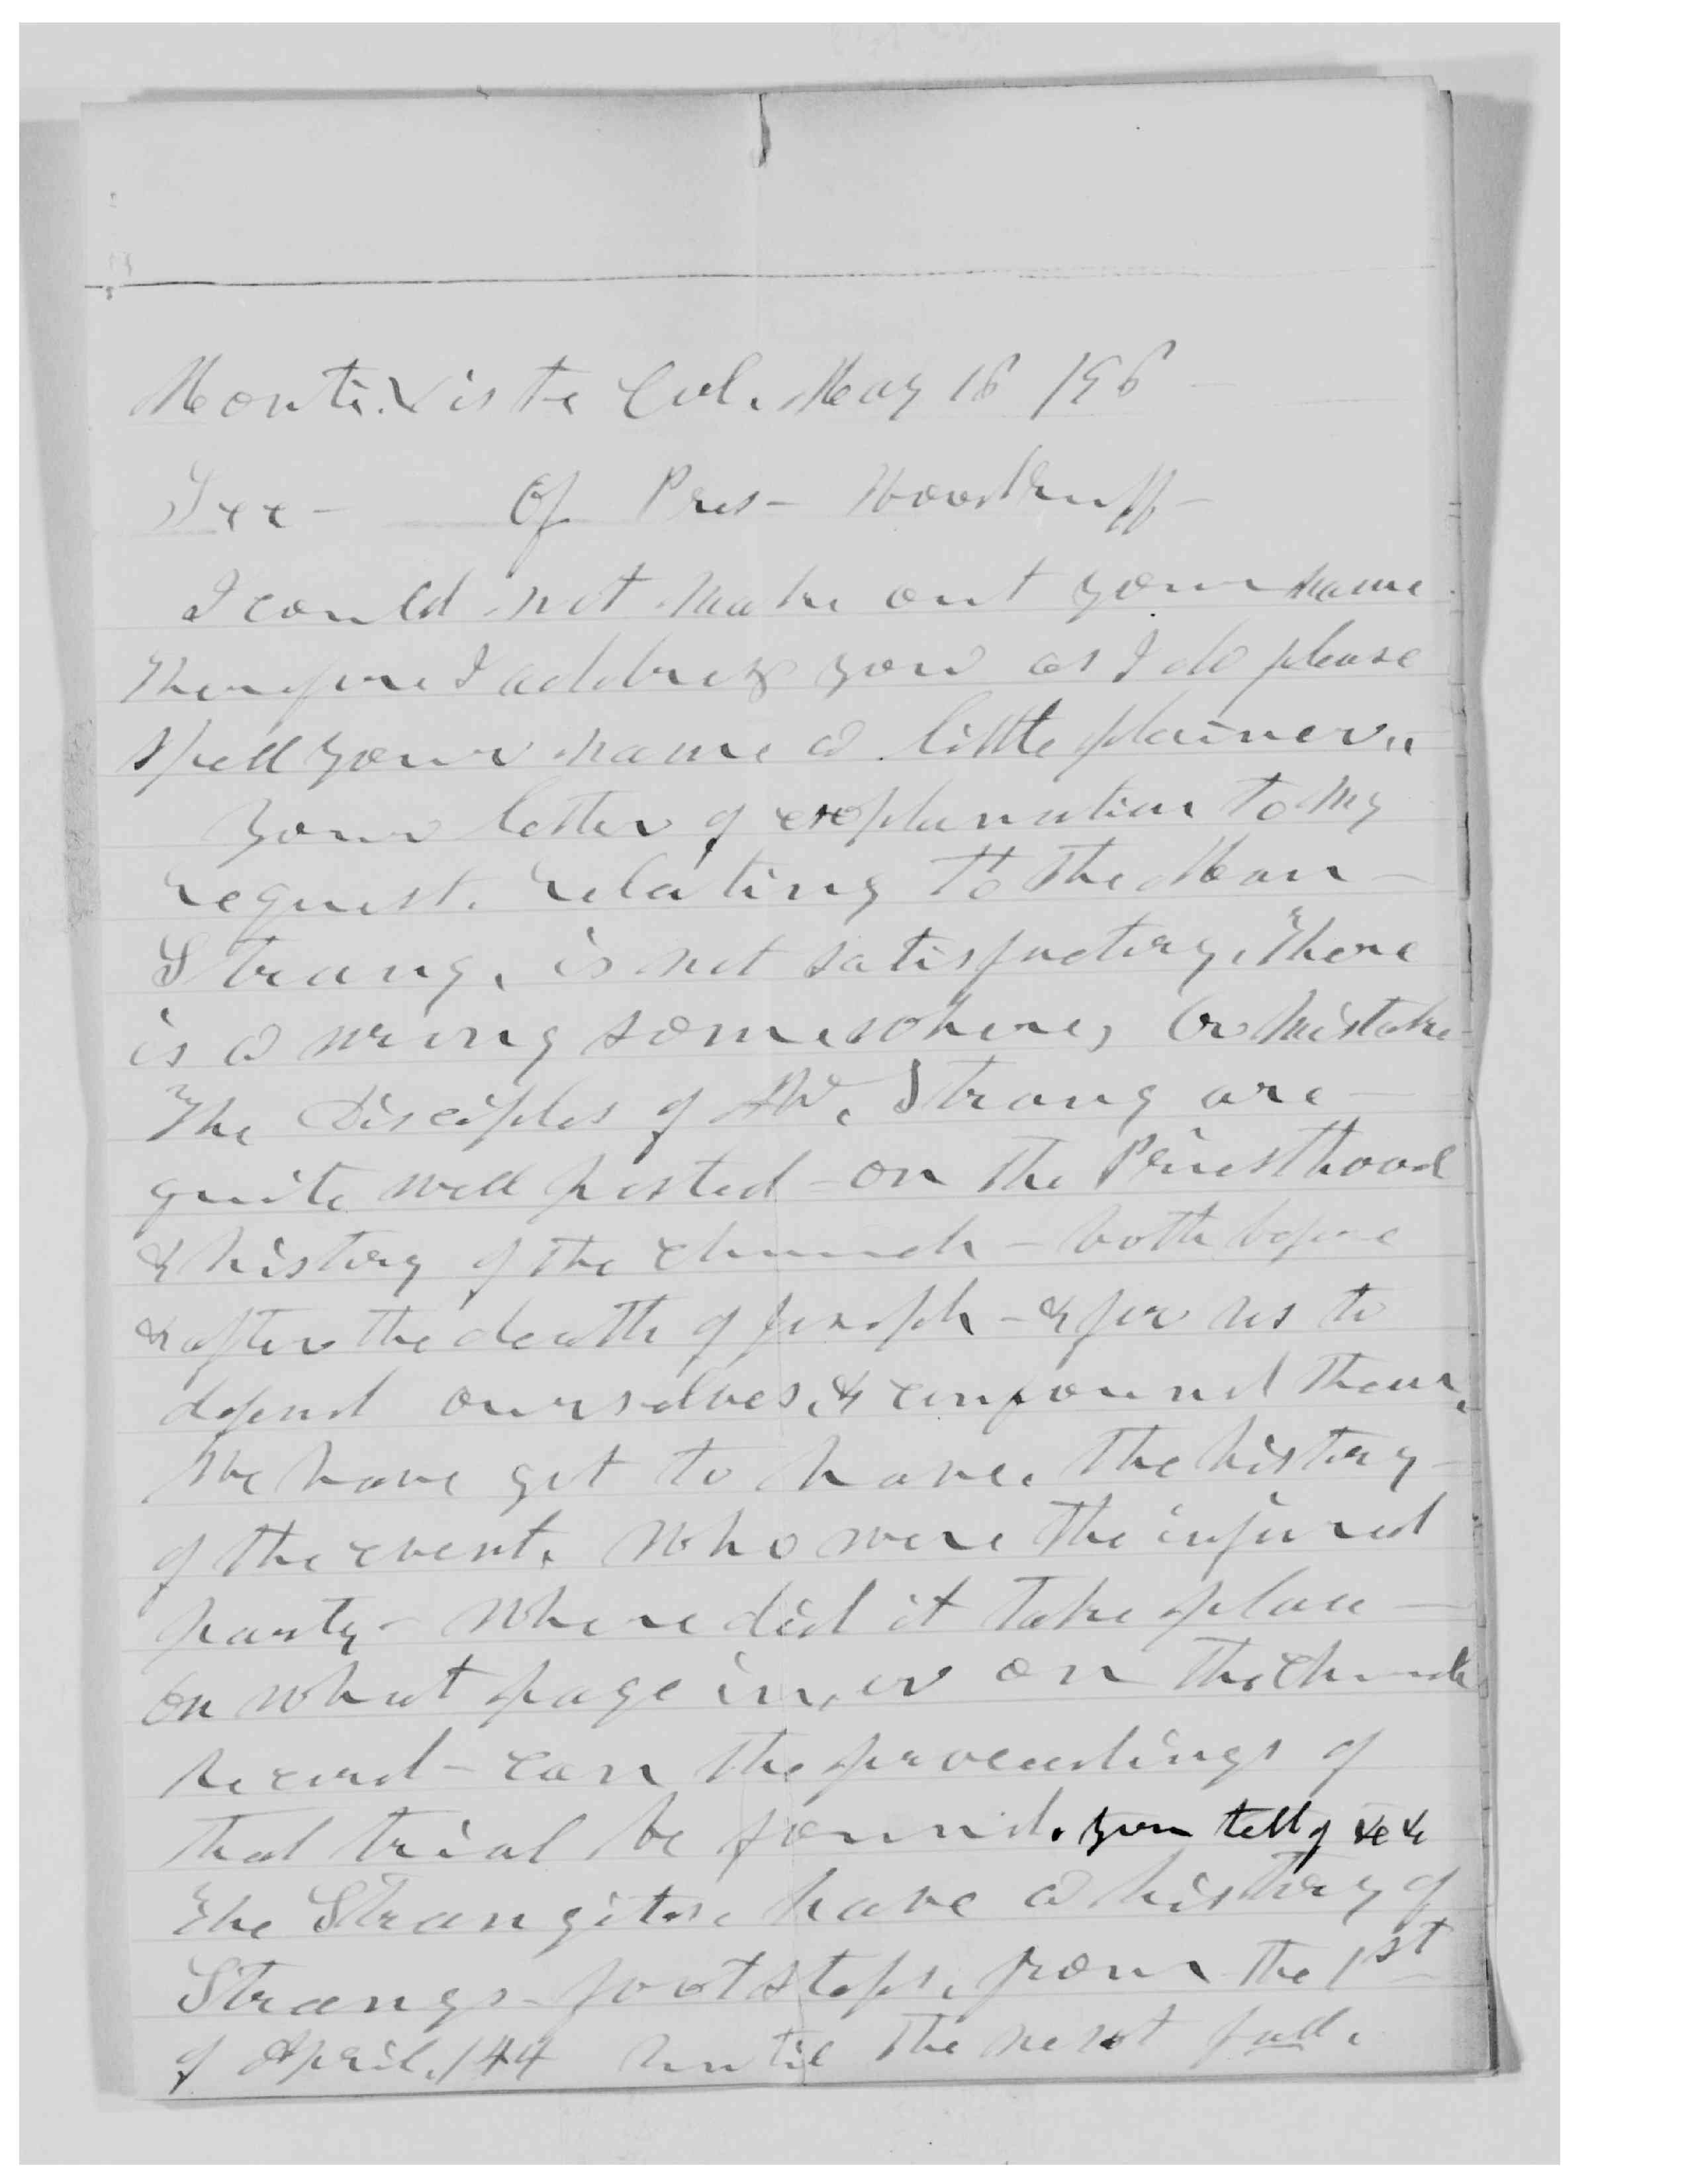 Monte.Vista Col. May 16 /96 -
Sec - Of Pres - Woodruff -
I could not make out your name
Therefore I address you as I do please
spell your name a little plainer.,
Your letter of explanation to my
request. relating to The Man -
Strang. is not satisfactory, There
is a wrong somewhere, Or Mistake
The Disciples of Mr. Strang are -
quite well posted - on The Priesthood
& history of The church - both before
& after the death of Joseph - & for us to
defend ourselves, & confound Them.
We have got to have. The history -
of the event. Who were The injured
party - Where did it Take place -
On what page in, or on The church
record - can The proceedings of
that trial be found. you tell of
The Strangites. have a history of
Strangs - footsteps. from The 1st
of April. /44 until The next fall.